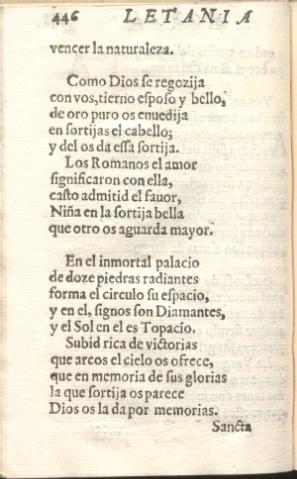 446 LETANIA
vencer la naturaleza.
Como Dios se regozija
con vos, tierno esposo y bello,
de oro puro os enuedija
en sortijas el cabello;
y del os da essa sortija.
Los Romanos el amor
significaron con ella,
casto admitid el fauor,
Niña en la sortija bella
que otro os aguarda mayor.
En el inmortal palacio
de doze piedras radiantes
forma el circulo su espacio,
y en el, signos son Diamantes,
y el Sol en el es Topacio.
Subid rica de victorias
que arcos el cielo os ofrece,
que en memoria de sus glorias
la que sortija os parece
Dios os la da por memorias.
Sancta